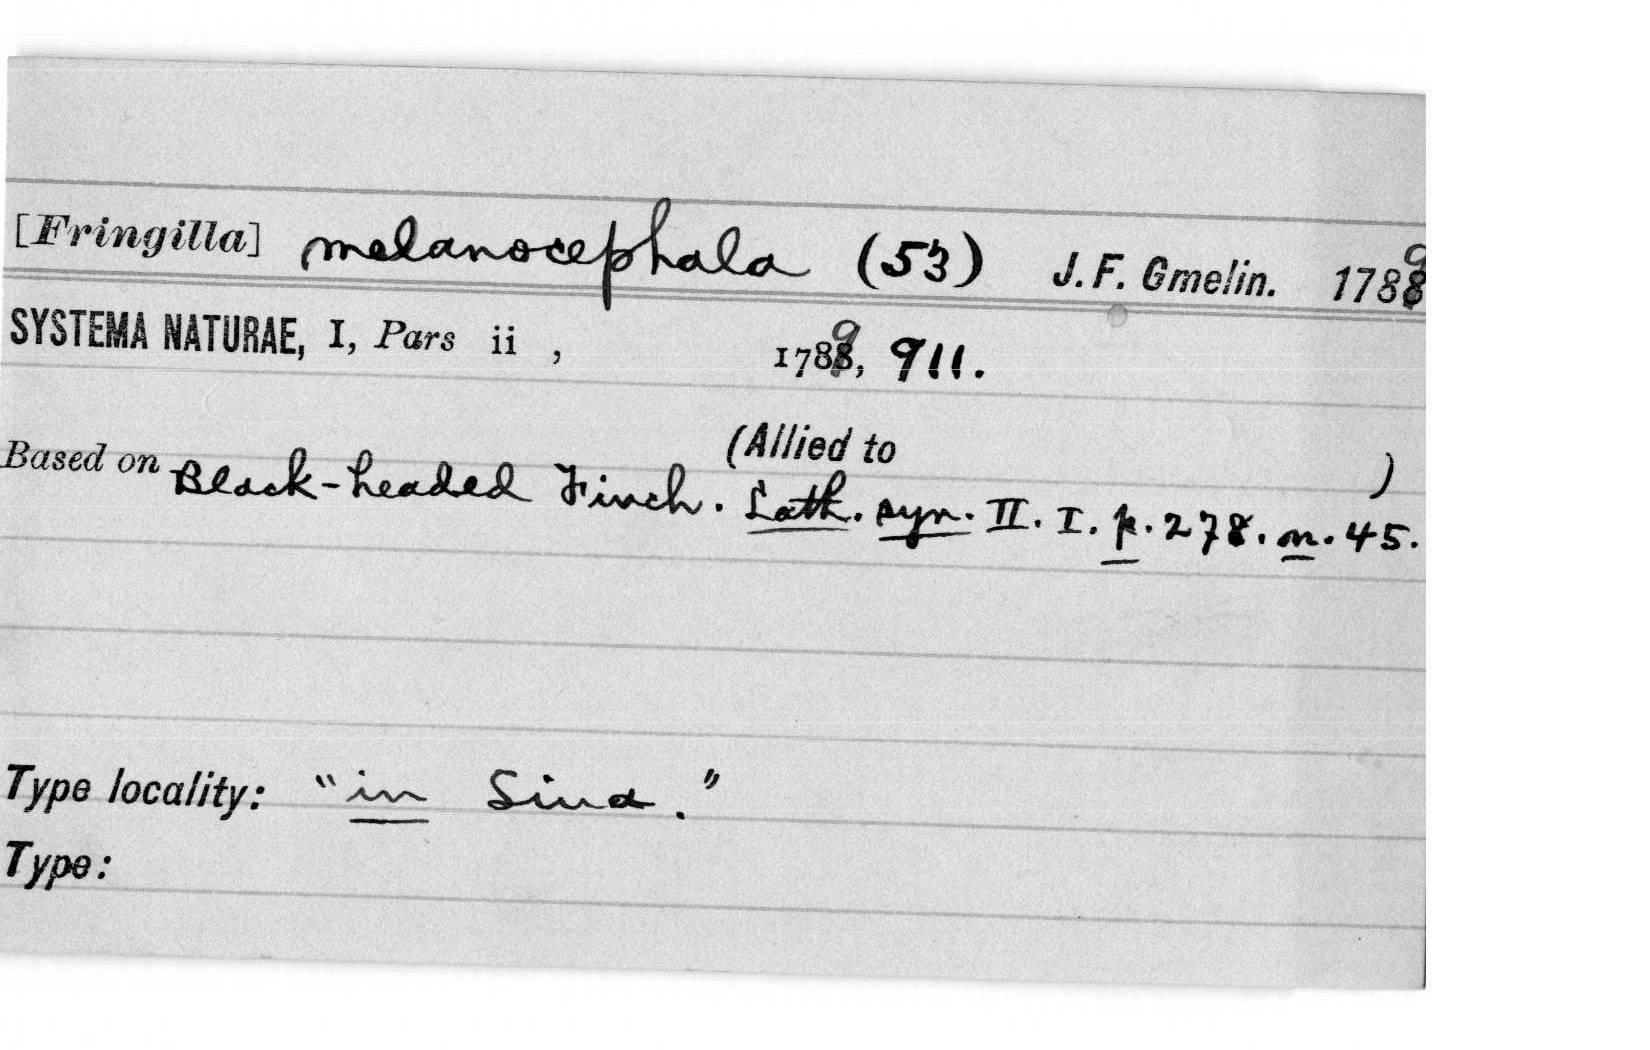 [Fringilla] melanocephala (53) J. F. Gmelin. 1789
SYSTEMA NATURAE, I, Pars ii , 1789, 911.
(Allied to )
Based on Black-headed Finch. Lath. syn. II. I. p. 278. n. 45.
Type locality: "in Sina."
Type: